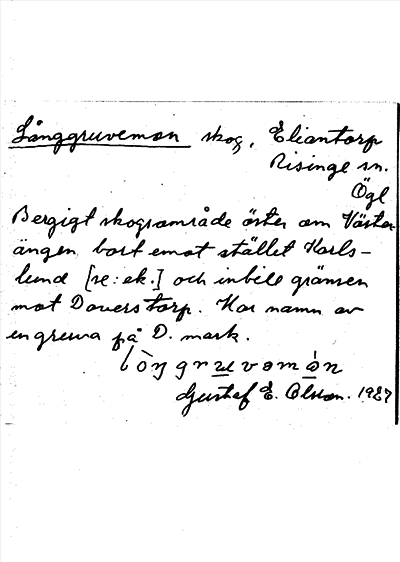 Långgruvemon skog, Eliantorp
Risinge sn.
Ögl
Bergigt skogsområde öster om Väster-
ängen bort emot stället Karls-
lund [se: ek.] och inbile gränsen
mot Doverstorp. Har namn av
en gruva på D. mark.
lòŋgruvəmòn
Gustaf E. Olsson. 1927